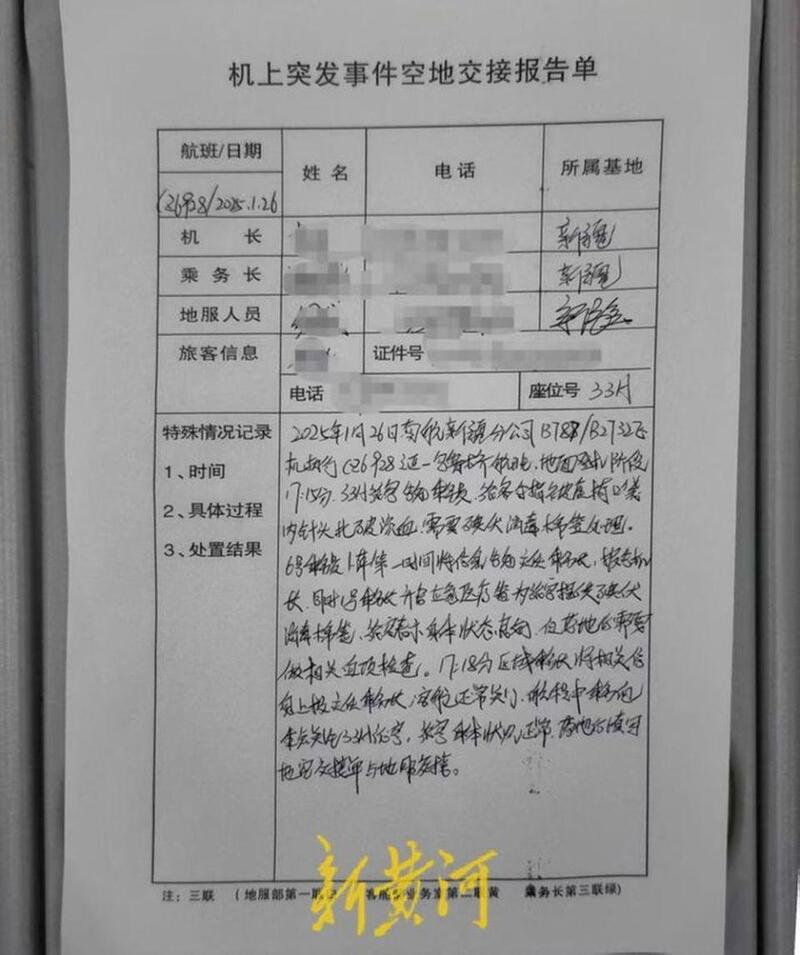 机上突发事件空地交接报告单
航班/日期
姓名
电话
所属基地
CZ6928/2025.1.26
机长
新疆
乘务长
新疆
地服人员
旅客信息
证件号
电话
座位号 33H
特殊情况记录
1、时间
2、具体过程
3、处置结果
2025年1月26日南航新疆分公司B787/B2732飞
机执行CZ6928 航班,地面登机阶段
17:15分,33H旅客告知乘务员,
内针头扎破流血,需要碘伏消毒棉签处理。
6号乘务员 第一时间将信息告知 乘务长,报告机
长,同时1号乘务长 应急医疗 为旅客提供碘伏
消毒棉签,旅客表示身体状态良好,但落地后需要
做相关血项检查。17:18分区域乘务长将相关信
息上报 乘务长,客舱正常关门,航程中乘务员
关注33H旅客,旅客身体状况正常,落地后填写
地空交接单与地服交接。
新黄河
注:三联 (地服部第一联 业务室第二联黄 乘务长第三联绿)